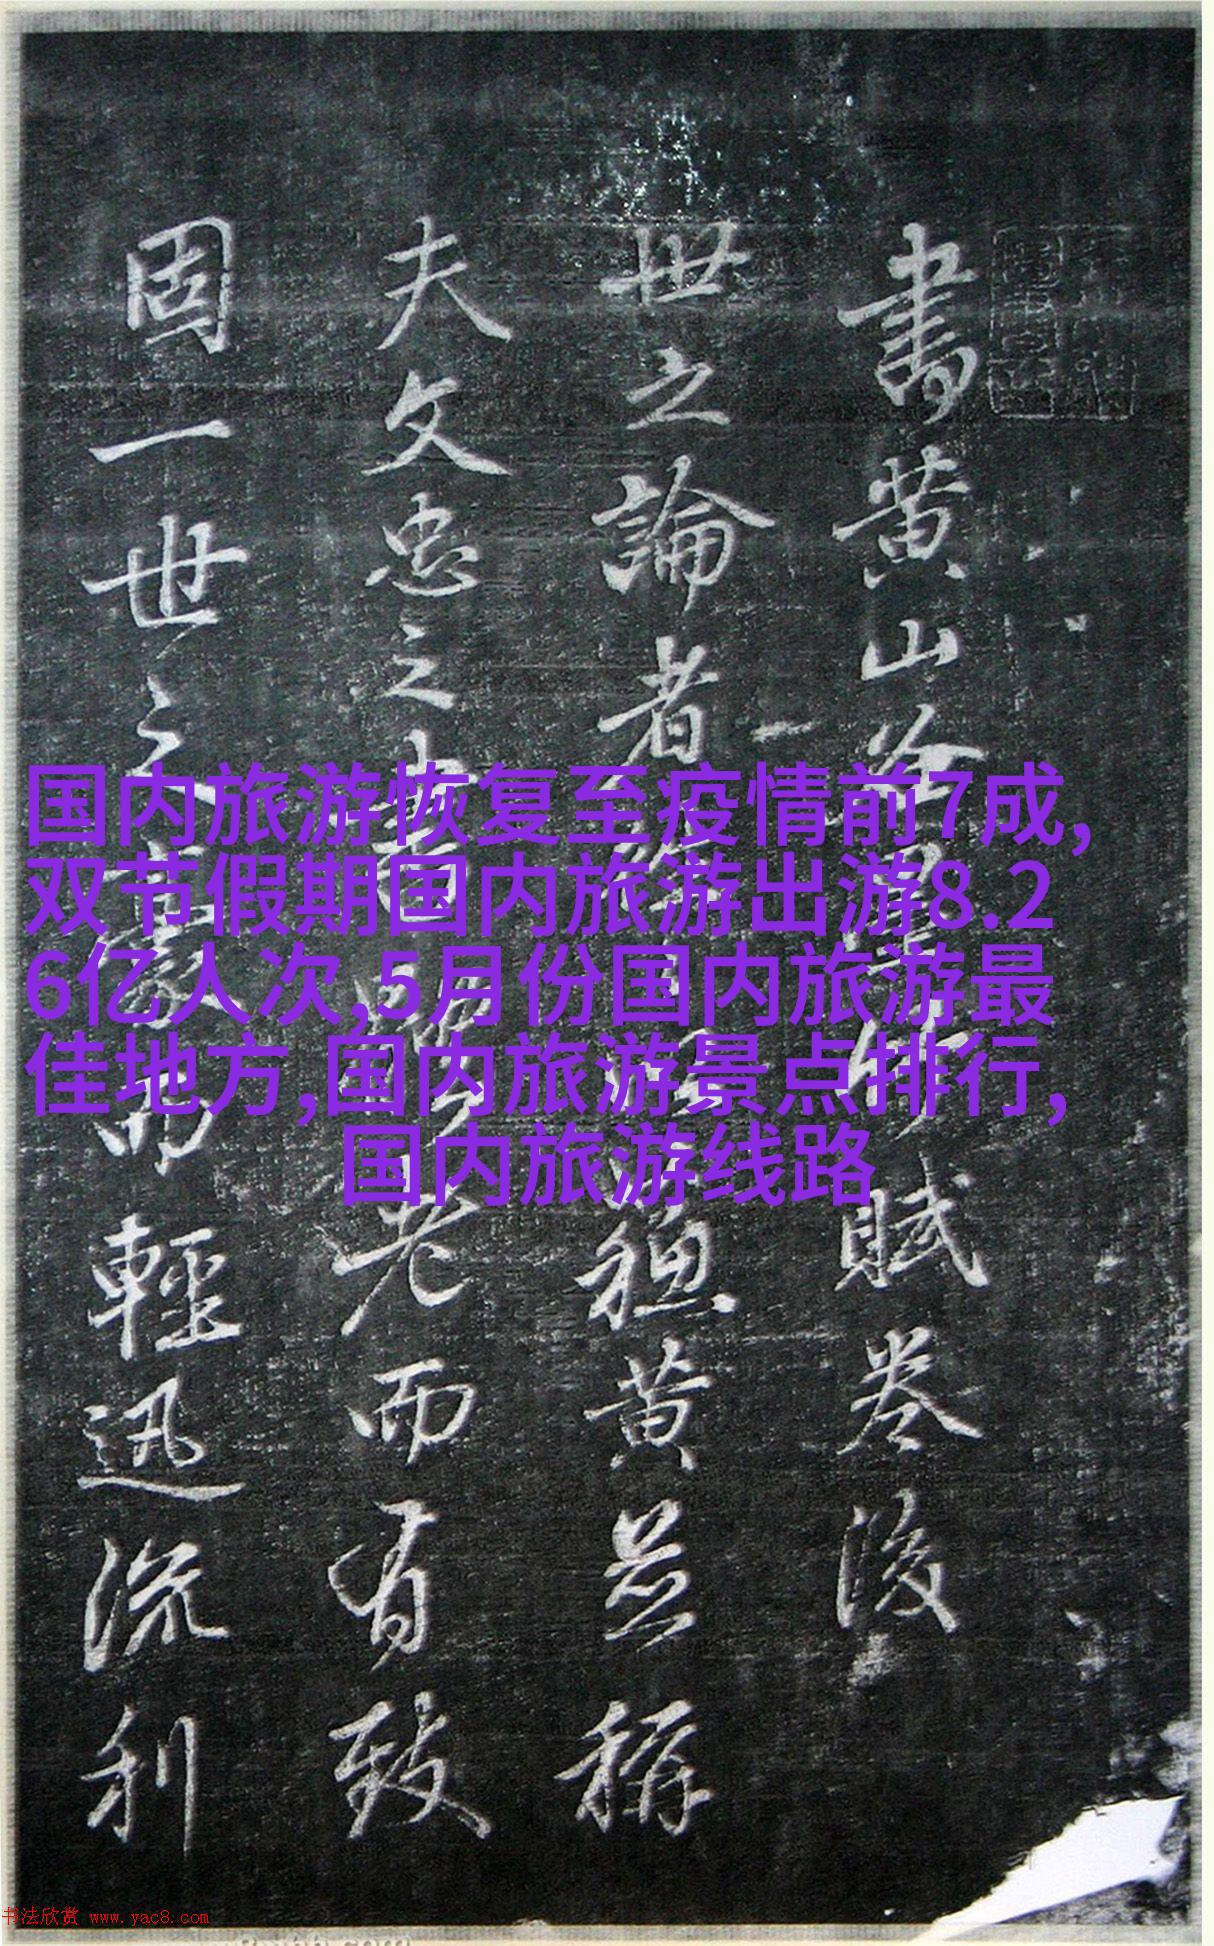 国内旅游恢复至疫情前7成,
双节假期国内旅游出游8.2
6亿人次,5月份国内旅游最
佳地方,国内旅游景点排行,
国内旅游线路
書黄山谷
賦卷後
世之論者
穏黄并稱
夫文忠之書
老而有致
固一世之豪
而輕迅流利
书法欣赏 www.yac8.com